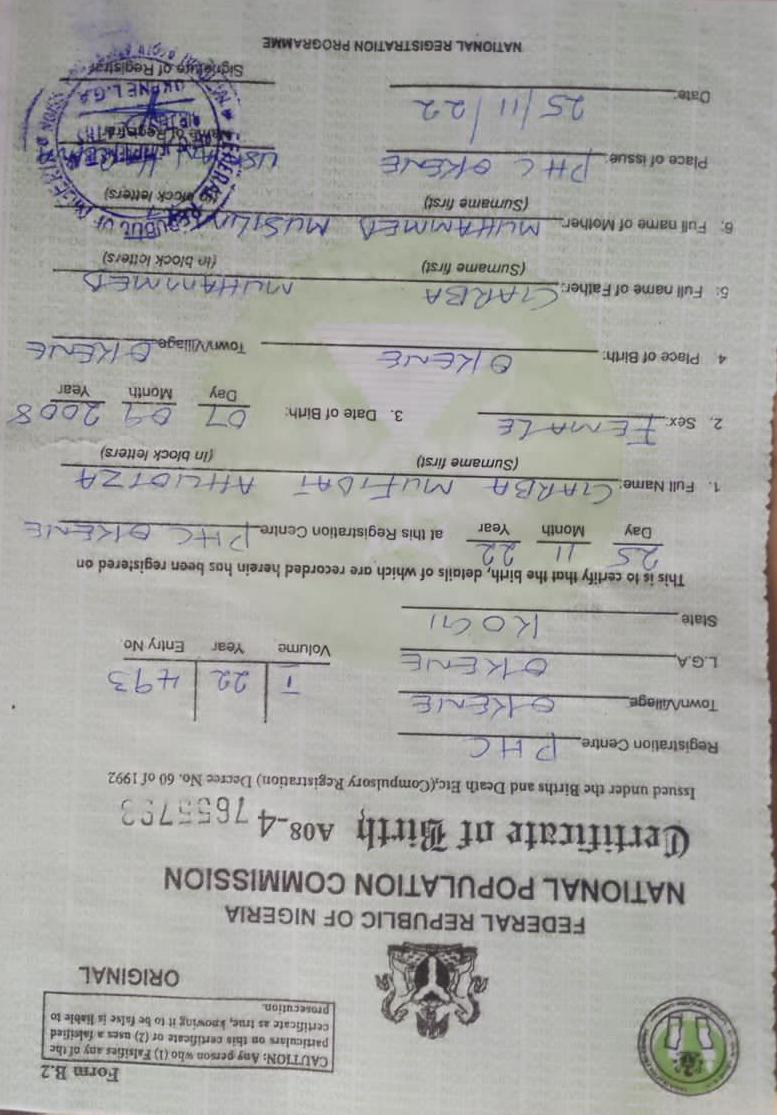 Form B.2
CAUTION: Any person who (1) Falsifies any of the
particulars on this certificate or (2) uses a falsified
certificate as true, knowing it to be false is liable to
prosecution.
ORIGINAL
FEDERAL REPUBLIC OF NIGERIA
NATIONAL POPULATION COMMISSION
Certificate of Birth A08-4 7655793
Issued under the Births and Death Etc,(Compulsory Registration) Decree No. 60 of 1992
Registration Centre PHC
Town/Village OKENE
L.G.A. OKENE
State KOGI
I 22 493
Volume Year Entry No.
This is to certify that the birth, details of which are recorded herein has been registered on
25 11 22 at this Registration Centre PHC OKENE
Day Month Year
1. Full Name: GARBA MUFIDAT
(Surname first) (In block letters)
2. Sex: FEMALE 3. Date of Birth: 07 09 2008
Day Month Year
4 Place of Birth: OKENE Town/Village OKENE
5: Full name of Father: GARBA MUHAMMED
(Surname first) (In block letters)
6: Full name of Mother: MUHAMMED
(Surname first) (In block letters)
Place of issue: PHC OKENE Name of Registrar
Date: 25/11/22 Signature of Registrar
NATIONAL REGISTRATION PROGRAMME